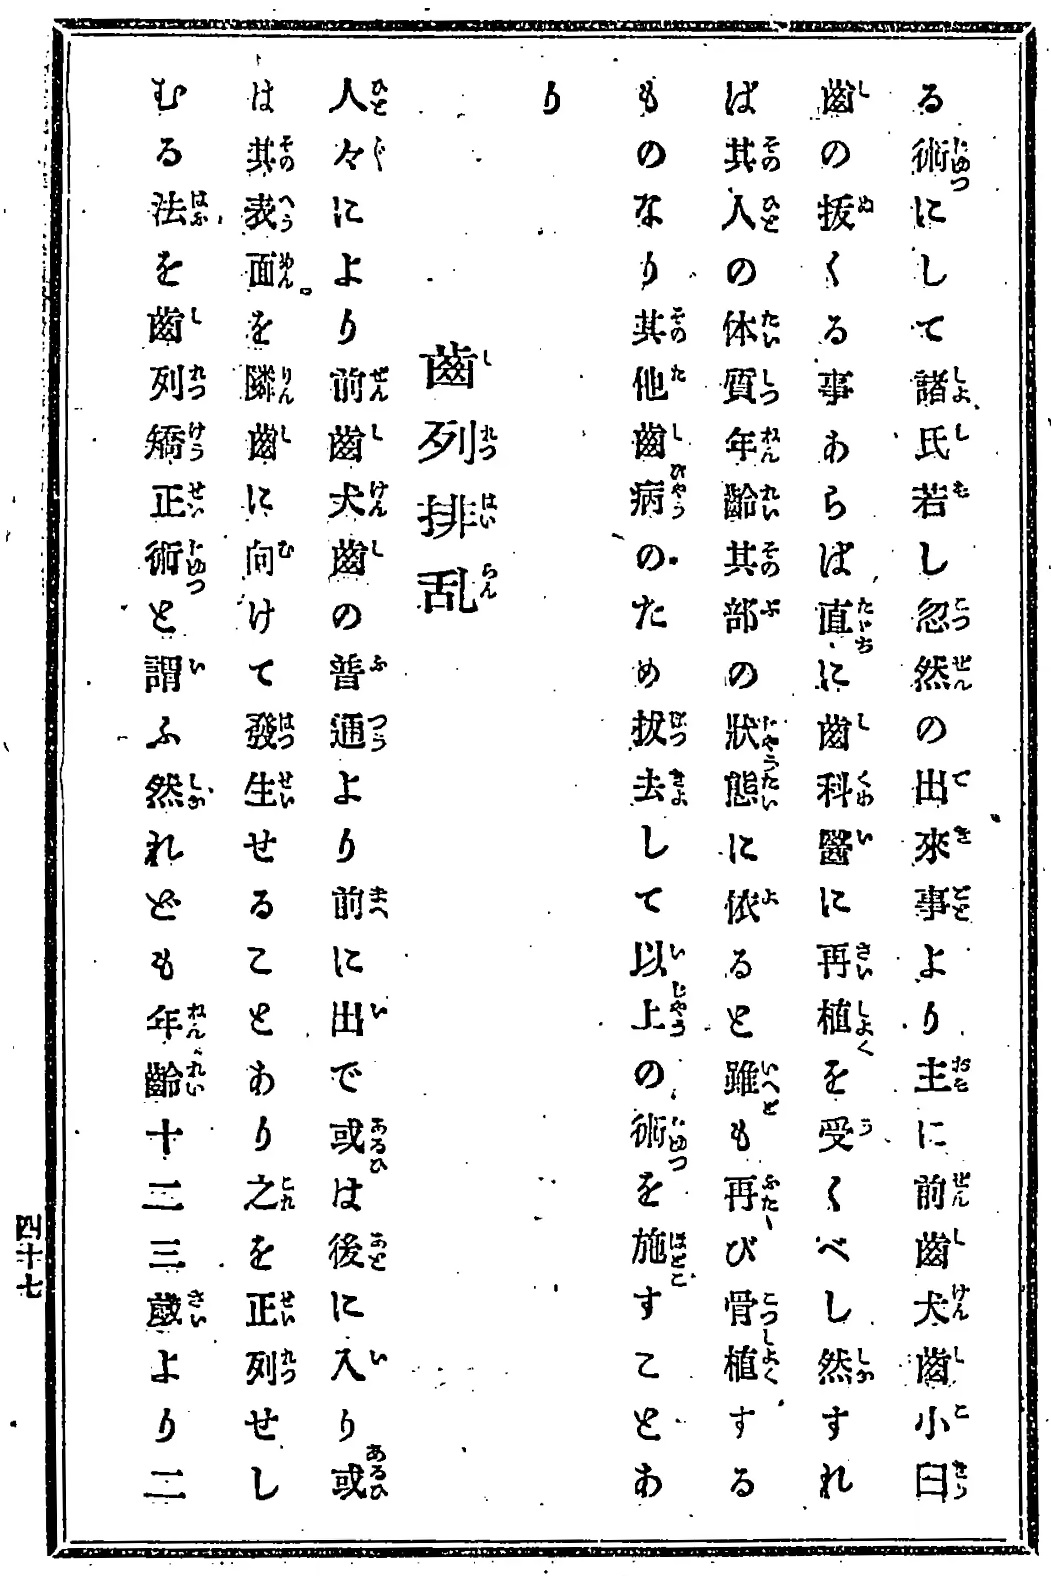 る術にして諸氏若し忽然の出來事より主に前齒犬齒小臼
齒の拔くる事あらば直に齒科醫に再植を受くべし然すれ
ば其人の体質年齡其部の狀態に依ると雖も再び骨植する
ものなり其他齒病のため拔去して以上の術を施すことあ
り
齒列排乱
人々により前齒犬齒の普通より前に出で或は後に入り或
は其表面を隣齒に向けて發生せることあり之を正列せし
むる法を齒列矯正術と謂ふ然れども年齡十二三歲より二
四十七